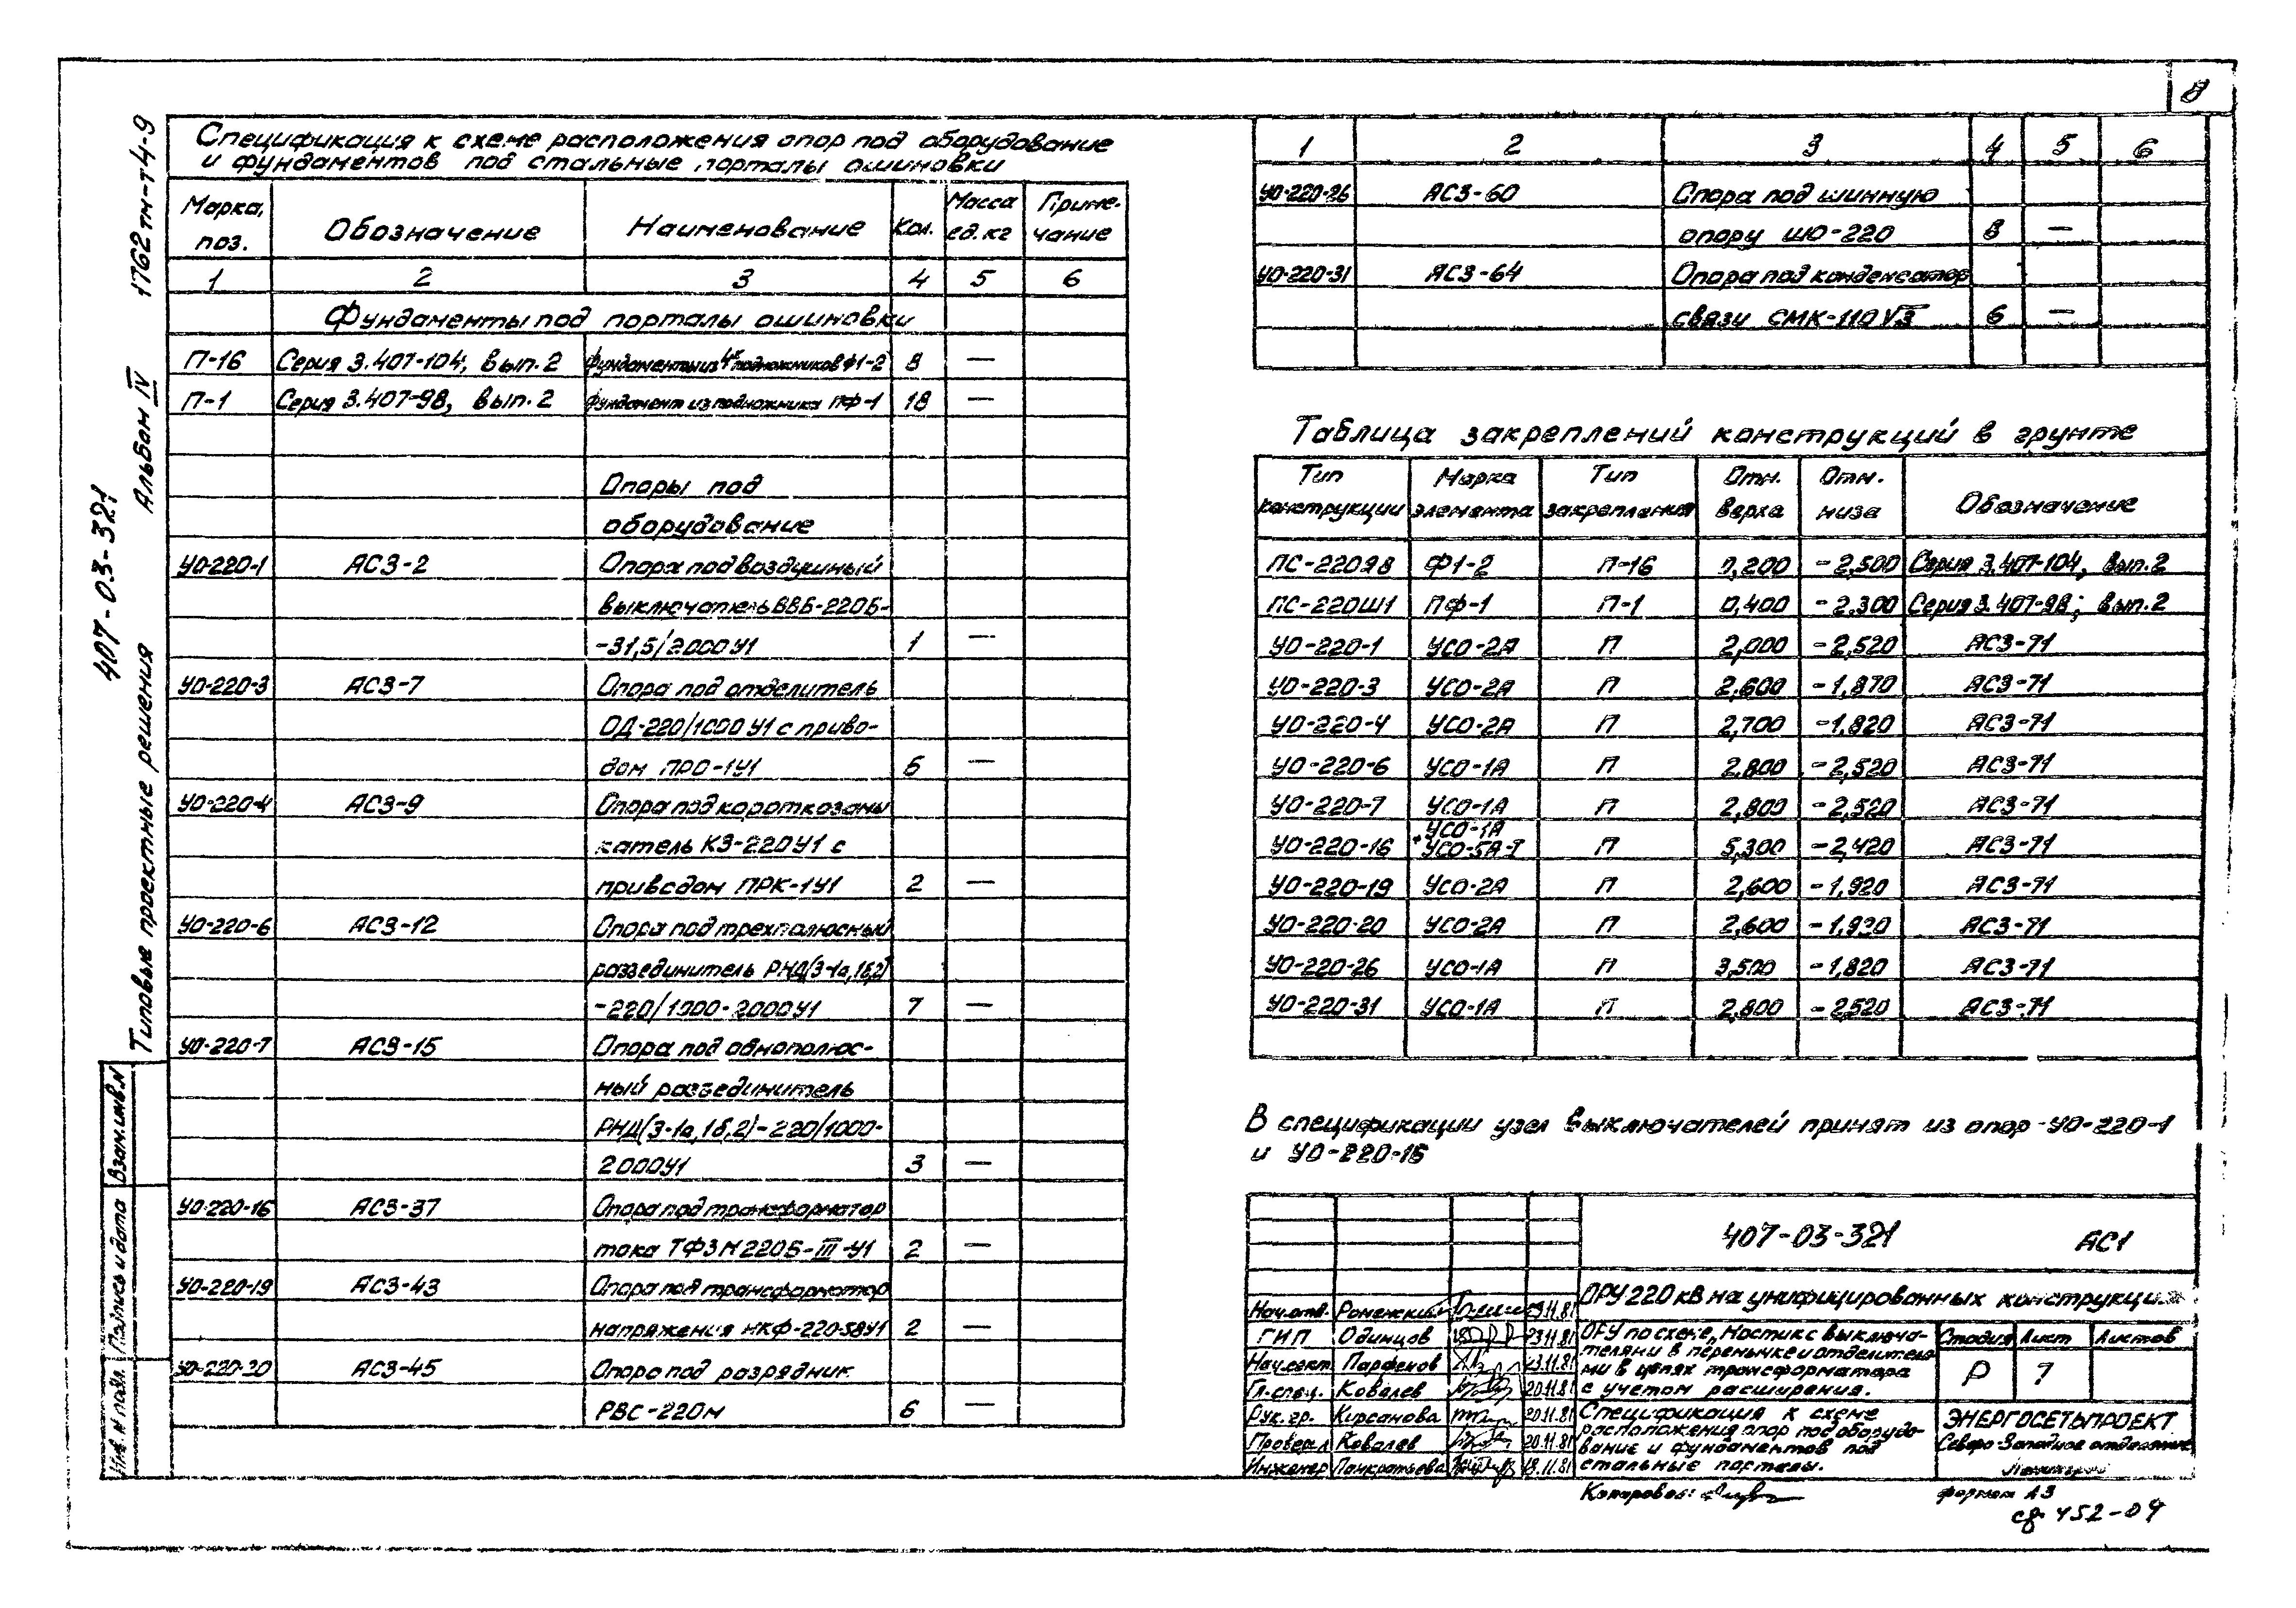 8
1762тм-т4-9
Альбом IV
407-03-321
Типовые проектные решения
Взам.инв.N
Подпись и дата
Инв. N подл.
Спецификация к схеме расположения опор под оборудование
и фундаментов под стальные порталы ошиновки
Марка, поз. Обозначение Наименование Кол. Масса ед. кг Приме-чание
1 2 3 4 5 6
Фундаменты под порталы ошиновки
П-16 Серия 3.407-104, вып. 2 Фундаменты из 4х подножников Ф1-2 8 —
П-1 Серия 3.407-98, вып. 2 Фундамент из подножника ПФ-1 18 —
Опоры под
оборудование
УО-220-1 АС3-2 Опора под воздушный
выключатель ВВБ-220Б-
-31,5/2000У1 1 —
УО-220-3 АС3-7 Опора под отделитель
ОД-220/1000 У1 с приво-
дом ПРО-1У1 6 —
УО-220-4 АС3-9 Опора под короткозамы
катель КЗ-220У1 с
приводом ПРК-1У1 2 —
УО-220-6 АС3-12 Опора под трехполюсный
разъединитель РНД(З-1а,1б,2)
-220/1000-2000У1 7 —
УО-220-7 АС3-15 Опора под однополюс-
ный разъединитель
РНД(З-1а,1б,2)-220/1000-
2000У1 3 —
УО-220-16 АС3-37 Опора под трансформатор
тока ТФЗМ220Б-III-У1 2 —
УО-220-19 АС3-43 Опора под трансформатор
напряжения НКФ-220-58У1 2 —
УО-220-20 АС3-45 Опора под разрядник
РВС-220м 6 —
1 2 3 4 5 6
УО-220-26 АС3-60 Опора под шинную
опору ШО-220 8 —
УО-220-31 АС3-64 Опора под конденсатор
связи СМК-110√3 6 —
Таблица закреплений конструкций в грунте
Тип конструкции Марка элемента Тип закрепления Отм. верха Отм. низа Обозначение
ПС-220Я8 Ф1-2 П-16 0,200 -2,500 Серия 3.407-104, вып. 2
ПС-220Ш1 ПФ-1 П-1 0,400 -2,300 Серия 3.407-98; вып. 2
УО-220-1 УСО-2А П 2,000 -2,520 АС3-71
УО-220-3 УСО-2А П 2,600 -1,870 АС3-71
УО-220-4 УСО-2А П 2,700 -1,820 АС3-71
УО-220-6 УСО-1А П 2,800 -2,520 АС3-71
УО-220-7 УСО-1А П 2,800 -2,520 АС3-71
УО-220-16 УСО-1А + УСО-5А-I П 5,300 -2,420 АС3-71
УО-220-19 УСО-2А П 2,600 -1,920 АС3-71
УО-220-20 УСО-2А П 2,600 -1,920 АС3-71
УО-220-26 УСО-1А П 3,500 -1,820 АС3-71
УО-220-31 УСО-1А П 2,800 -2,520 АС3-71
В спецификации узел выключателей принят из опор УО-220-1
и УО-220-16
407-03-321 АС1
ОРУ 220 кВ на унифицированных конструкциях
Нач.отд. Роменский 19.11.81
ГИП Одинцов 23.11.81
Нач.сект. Парфенов 23.11.81
Гл.спец. Ковалев 20.11.81
Рук.гр. Кирсанова 20.11.81
Проверил Ковалев 20.11.81
Инженер Панкратьева 19.11.81
ОРУ по схеме „Мостик с выключа-
телями в перемычке и отделителя-
ми в цепях трансформатора
с учетом расширения.
Стадия Лист Листов
Р 7
Спецификация к схеме
расположения опор под оборудо-
вание и фундаментов под
стальные порталы.
ЭНЕРГОСЕТЬПРОЕКТ
Северо-Западное отделение
Ленинград
Копировал:
формат А3
сф 452-04